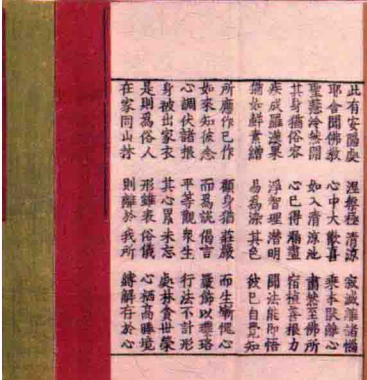 此有安隱處　涅槃極清涼　寂滅離諸惱
耶舍聞佛教　心中大歡喜　乘本厭離心
聖慧泠然開　如入清涼池　肅然至佛所
其身猶俗容　心已得漏盡　宿植善根力
疾成羅漢果　淨智理潛明　聞法能即悟
猶如鮮素繒　易為染其色　彼已自覺知
所應作已作　顧身猶莊嚴　而生慚愧心
如來知彼念　而為說偈言　嚴飾以瓔珞
心調伏諸根　平等觀眾生　行法不計形
身被出家衣　其心累未忘　處林貪世榮
是則為俗人　形雖表俗儀　心栖高勝境
在家同山林　則離於我所　縛解存於心